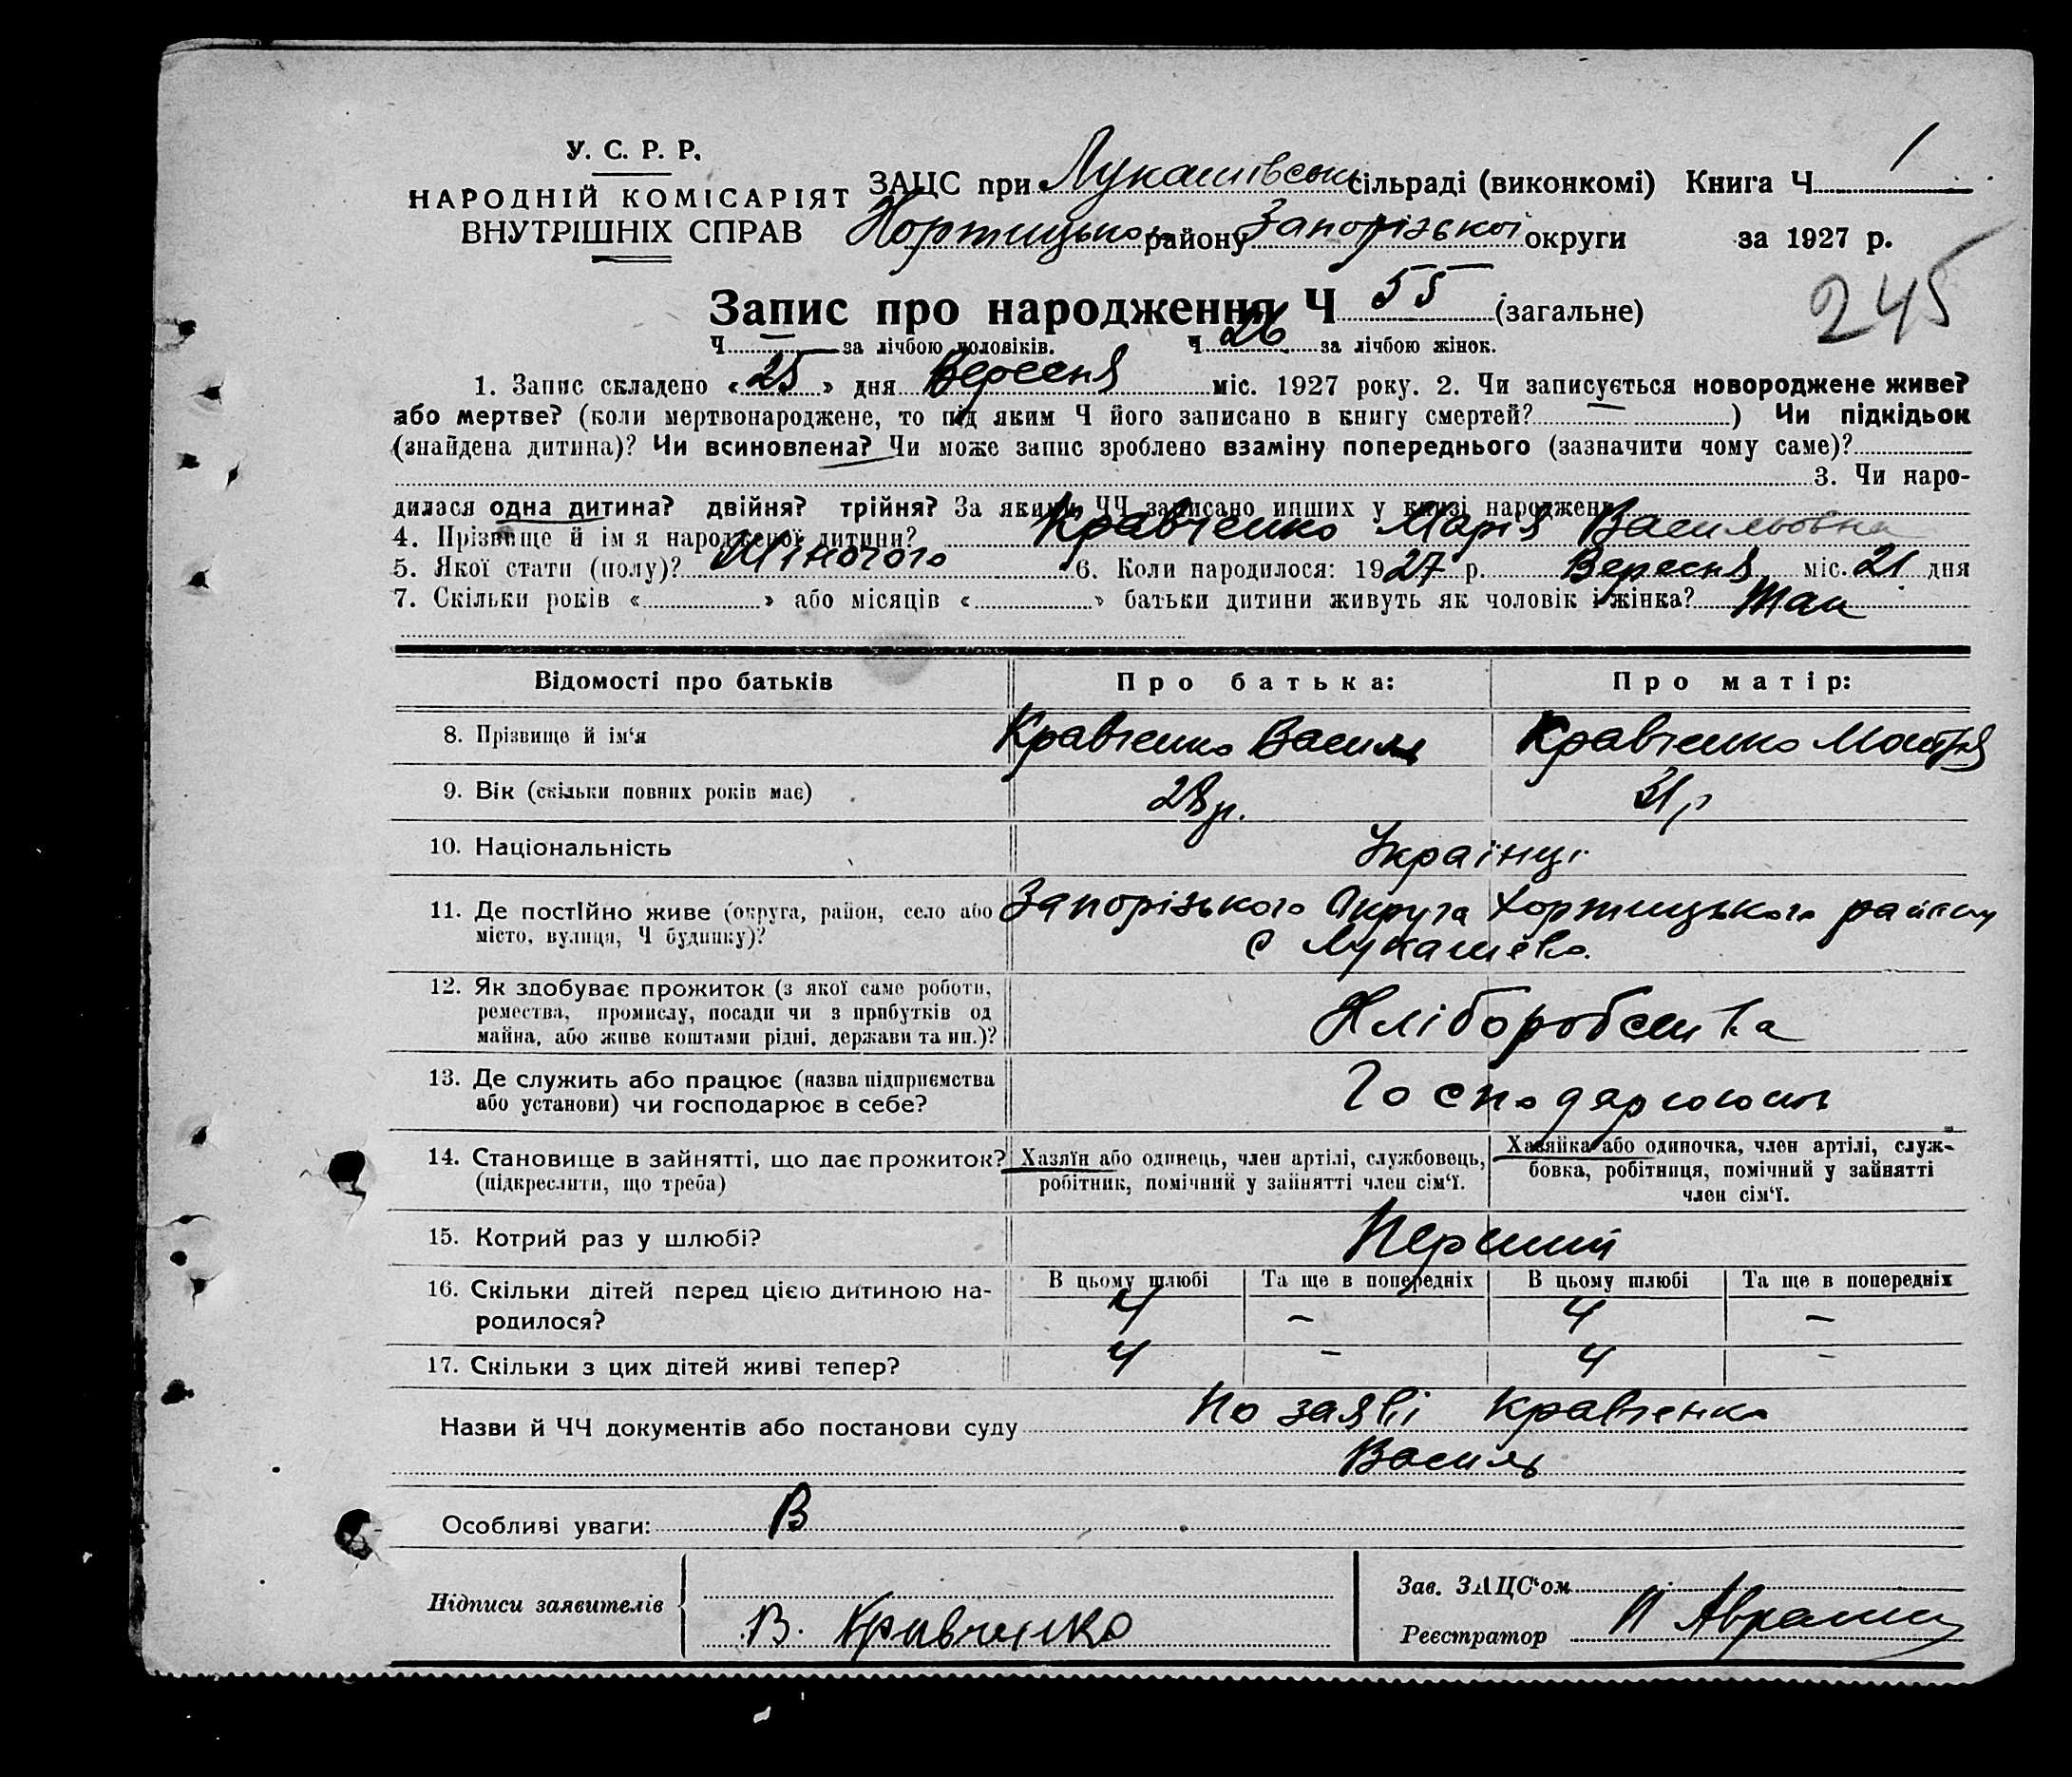 У. С. Р. Р.
НАРОДНІЙ КОМІСАРІЯТ
ВНУТРІШНІХ СПРАВ
ЗАЦС при Лукашівськ сільраді (виконкомі) Книга Ч 1
Хортицького району Запорізької округи за 1927 р.
245
Запис про народження Ч 55 (загальне)
Ч — за лічбою чоловіків. Ч 26 за лічбою жінок.
1. Запис складено «25» дня Вересня міс. 1927 року. 2. Чи записується новороджене живе?
або мертве? (коли мертвонароджене, то під яким Ч його записано в книгу смертей? — ) Чи підкідьок
(знайдена дитина)? Чи всиновлена? Чи може запис зроблено взаміну попереднього (зазначити чому саме)?
3. Чи наро-
дилася одна дитина? двійня? трійня? За якими ЧЧ записано инших у книзі народжень
4. Прізвище й імя народженої дитини? Кравченко Марія Васильовна
5. Якої стати (полу)? Жіночого 6. Коли народилося: 1927 р. Вересня міс. 21 дня
7. Скільки років « » або місяців « » батьки дитини живуть як чоловік і жінка? Так
Відомості про батьків Про батька: Про матір:
8. Прізвище й ім‘я Кравченко Василь Кравченко Мотря
9. Вік (скільки повних років має) 28 р. 31 р
10. Національність Українці
11. Де постійно живе (округа, район, село або Запорізького Округа Хортицького району
місто, вулиця, Ч будинку)? с Лукашево.
12. Як здобуває прожиток (з якої саме роботи,
ремества, промислу, посади чи з прибутків од Хліборобства
майна, або живе коштами рідні, держави та ин.)?
13. Де служить або працює (назва підприємства Господарюють
або установи) чи господарює в себе?
14. Становище в зайнятті, що дає прожиток? Хазяїн або одинець, член артілі, службовець, Хазяйка або одиночка, член артілі, служ-
(підкреслити, що треба) робітник, помічний у зайнятті член сім‘ї. бовка, робітниця, помічний у зайнятті
член сім‘ї.
15. Котрий раз у шлюбі? Перший
16. Скільки дітей перед цією дитиною на- В цьому шлюбі Та ще в попередніх В цьому шлюбі Та ще в попередніх
родилося? 4 — 4 —
17. Скільки з цих дітей живі тепер? 4 — 4 —
Назви й ЧЧ документів або постанови суду По заяві Кравченка
Василь
Особливі уваги: В
Підписи заявителів В. Кравченко
Зав. ЗАЦС‘ом
Реєстратор